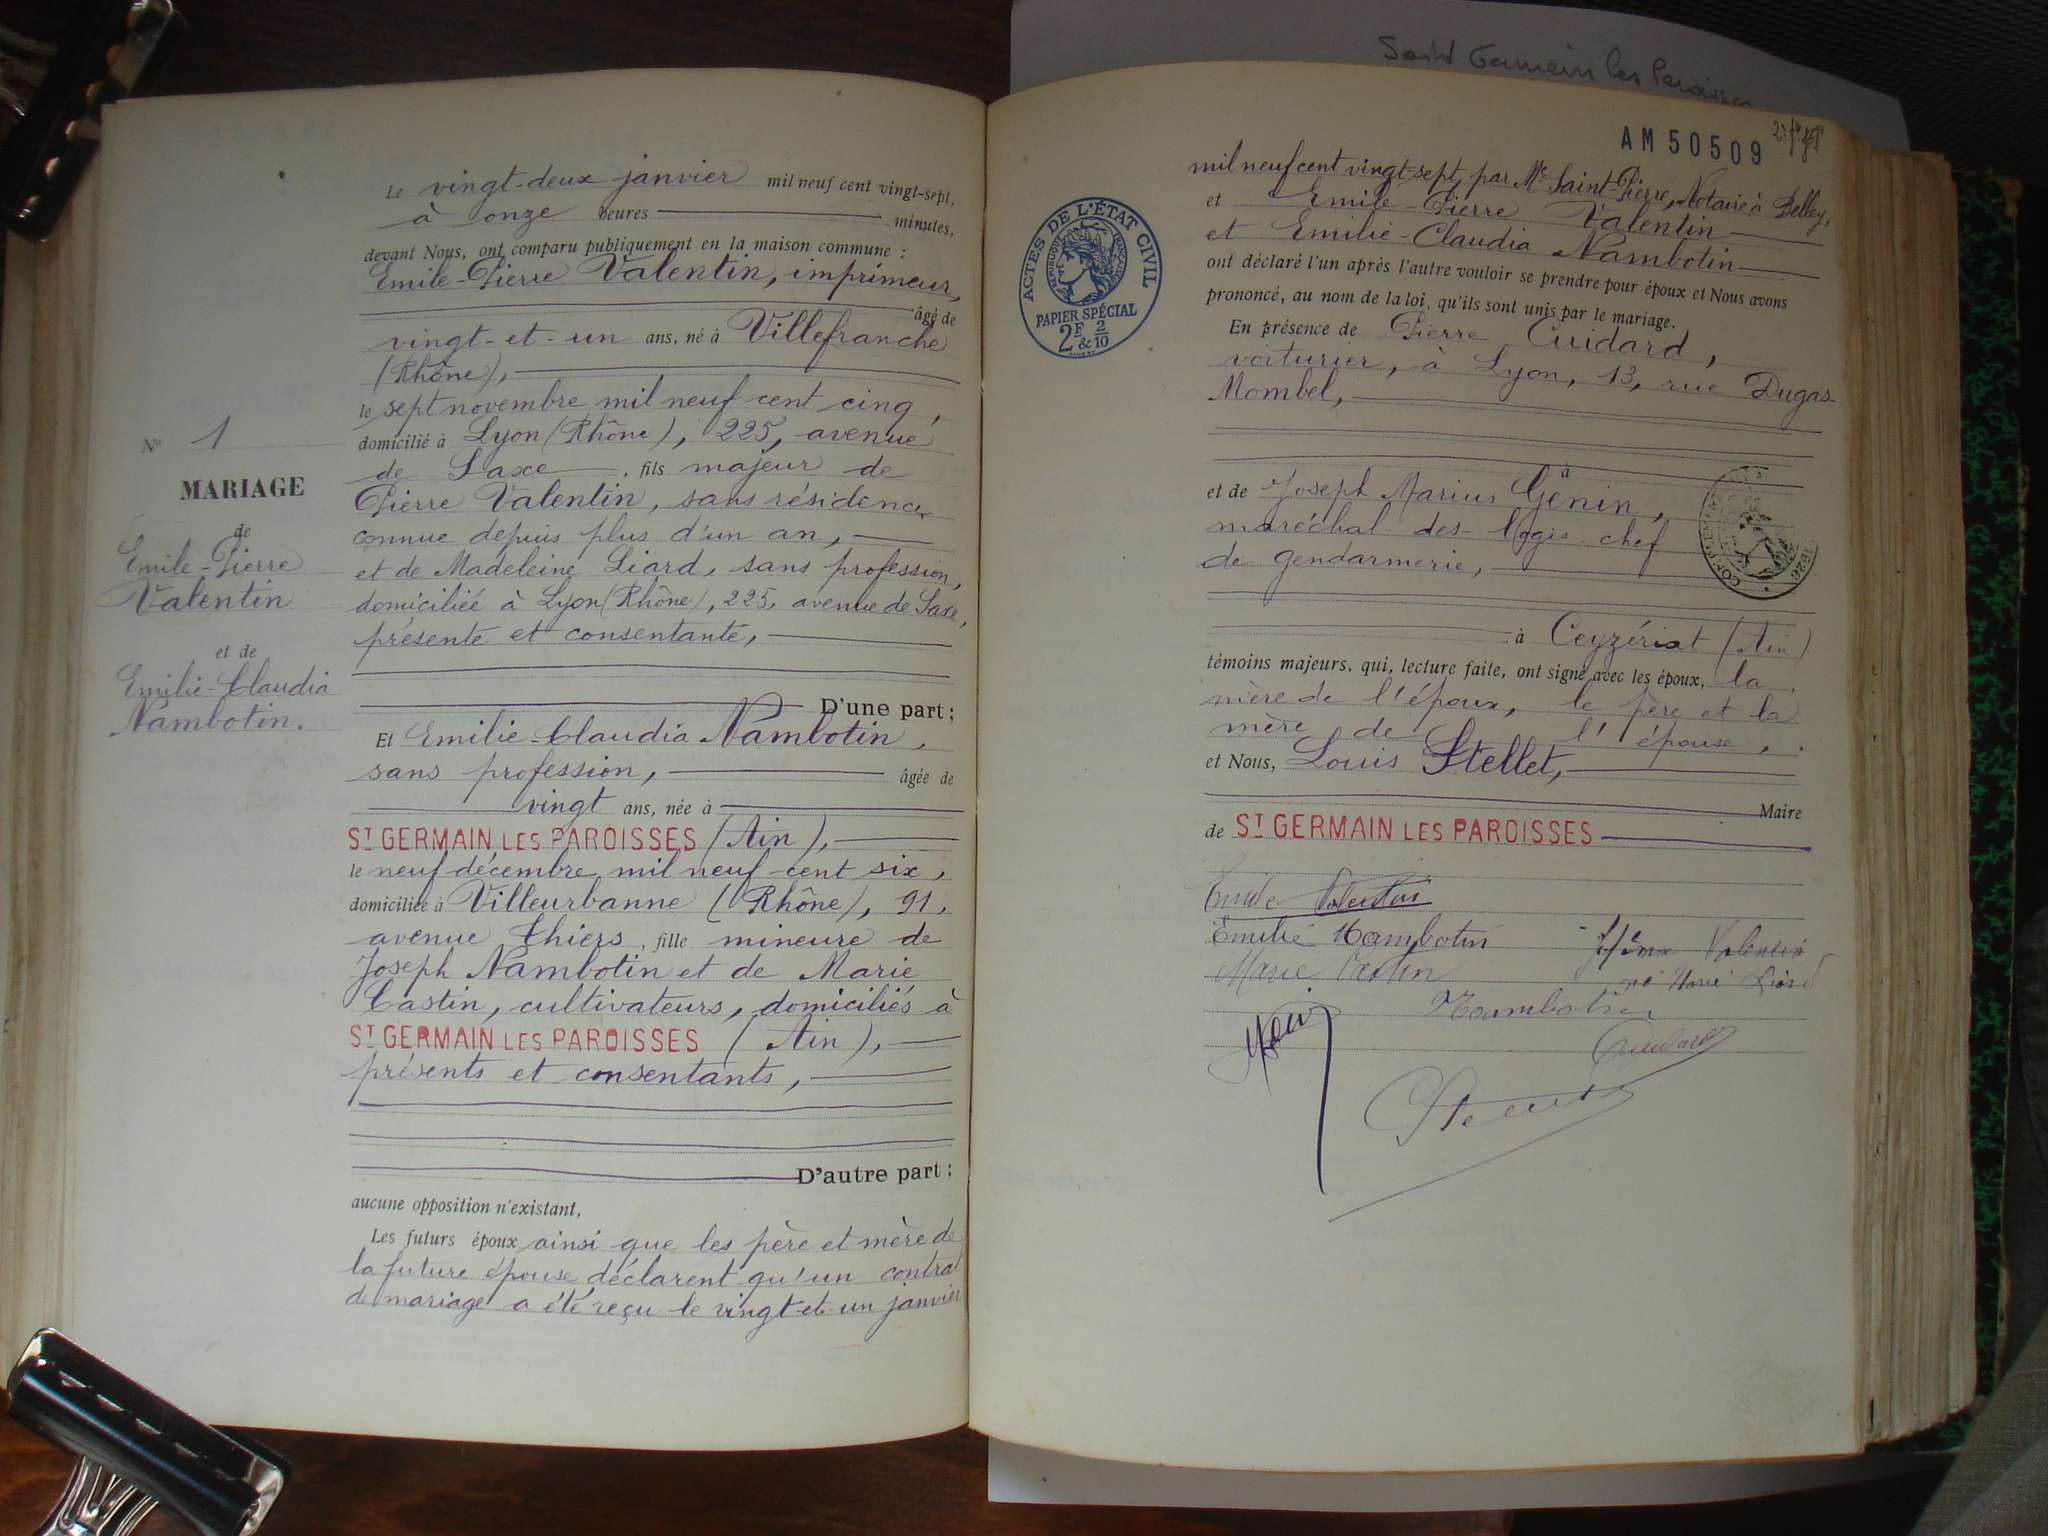 Saint Germain les Paroisses
Le vingt-deux janvier mil neuf cent vingt-sept,
à onze heures minutes,
devant Nous, ont comparu publiquement en la maison commune :
Emile-Pierre Valentin, imprimeur,
âgé de
vingt-et-un ans, né à Villefranche
(Rhône),
le sept novembre mil neuf cent cinq,
domicilié à Lyon (Rhône), 225, avenue
de Saxe, fils majeur de
Pierre Valentin, sans résidence
connue depuis plus d'un an,
et de Madeleine Liard, sans profession,
domiciliée à Lyon (Rhône), 225, avenue de Saxe,
présente et consentante,
D'une part ;
No 1
MARIAGE
de
Emile-Pierre
Valentin
et de
Emilie-Claudia
Nambotin.
Et Emilie-Claudia Nambotin,
sans profession, âgée de
vingt ans, née à
ST GERMAIN LES PAROISSES (Ain),
le neuf décembre mil neuf cent six,
domiciliée à Villeurbanne (Rhône), 91,
avenue Thiers, fille mineure de
Joseph Nambotin et de Marie
Castin, cultivateurs, domiciliés à
ST GERMAIN LES PAROISSES (Ain),
présents et consentants,
D'autre part ;
aucune opposition n'existant,
Les futurs époux ainsi que les père et mère de
la future épouse déclarent qu'un contrat
de mariage a été reçu le vingt-et-un janvier
AM 50509
mil neuf cent vingt-sept, par Me Saint-Pierre, Notaire à Belley,
et Emile-Pierre Valentin
et Emilie-Claudia Nambotin
ont déclaré l'un après l'autre vouloir se prendre pour époux et Nous avons
prononcé, au nom de la loi, qu'ils sont unis par le mariage.
En présence de Pierre Cuidard,
voiturier, à Lyon, 13, rue Dugas-
Mombel,
à
et de Joseph Marius Génin,
maréchal-des-logis-chef
de gendarmerie,
à Ceyzériat (Ain)
témoins majeurs, qui, lecture faite, ont signé avec les époux, la
mère de l'époux, le père et la
mère de l'épouse,
et Nous, Louis Stellet,
Maire
de ST GERMAIN LES PAROISSES
ACTES DE L'ÉTAT CIVIL
RÉPUBLIQUE FRANÇAISE
PAPIER SPÉCIAL
2F & 2/10
1926
Emile Valentin
Emilie Nambotin
Valentin
Marie Castin
né Marie Liard
Nambotin
Cuidard